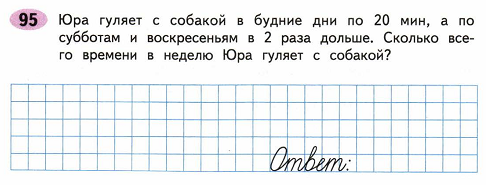 95 Юра гуляет с собакой в будние дни по 20 мин, а по
субботам и воскресеньям в 2 раза дольше. Сколько все-
го времени в неделю Юра гуляет с собакой?
Ответ: